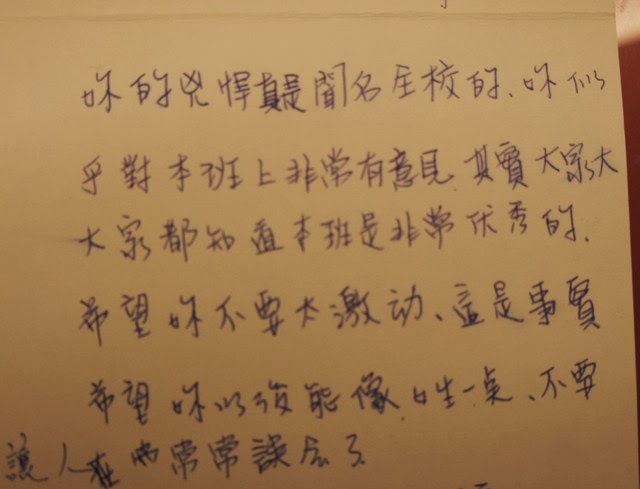 妳的兇悍真是聞名全校的、妳似
乎對本班上非常有意見 其實大家大
大家都知道本班是非常优秀的、
希望妳不要太激动、這是事實
希望妳以後能像 生一桌、不要
讓人在 常常誤会了